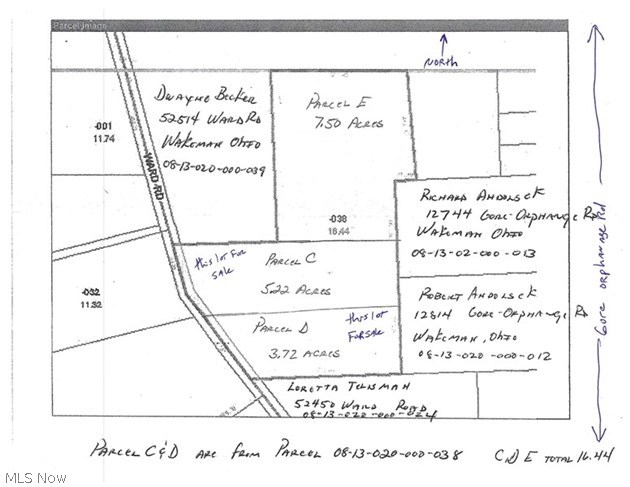 Parcel Image
NORTH
DWAYNE BECKER
52514 WARD RD
WAKEMAN OHIO
08-13-020-000-039
PARCEL E
7.50 ACRES
-001
11.74
WARD RD
RICHARD ANDOLSEK
12744 GORE-ORPHANGE RD
WAKEMAN OHIO
08-13-02-000-013
-038
16.44
this lot For
SALE
PARCEL C
5.22 ACRES
-032
11.32
ROBERT ANDOLSEK
12814 GORE-ORPHANGE RD
WAKEMAN, OHIO
08-13-020-000-012
PARCEL D
3.72 ACRES
this lot
FOR SALE
LORETTA TULISMAN
52450 WARD ROAD
08-13-020-000-024
Gore orphanage Rd
PARCEL C&D ARE FROM PARCEL 08-13-020-000-038 C,D E TOTAL 16.44
MLS Now